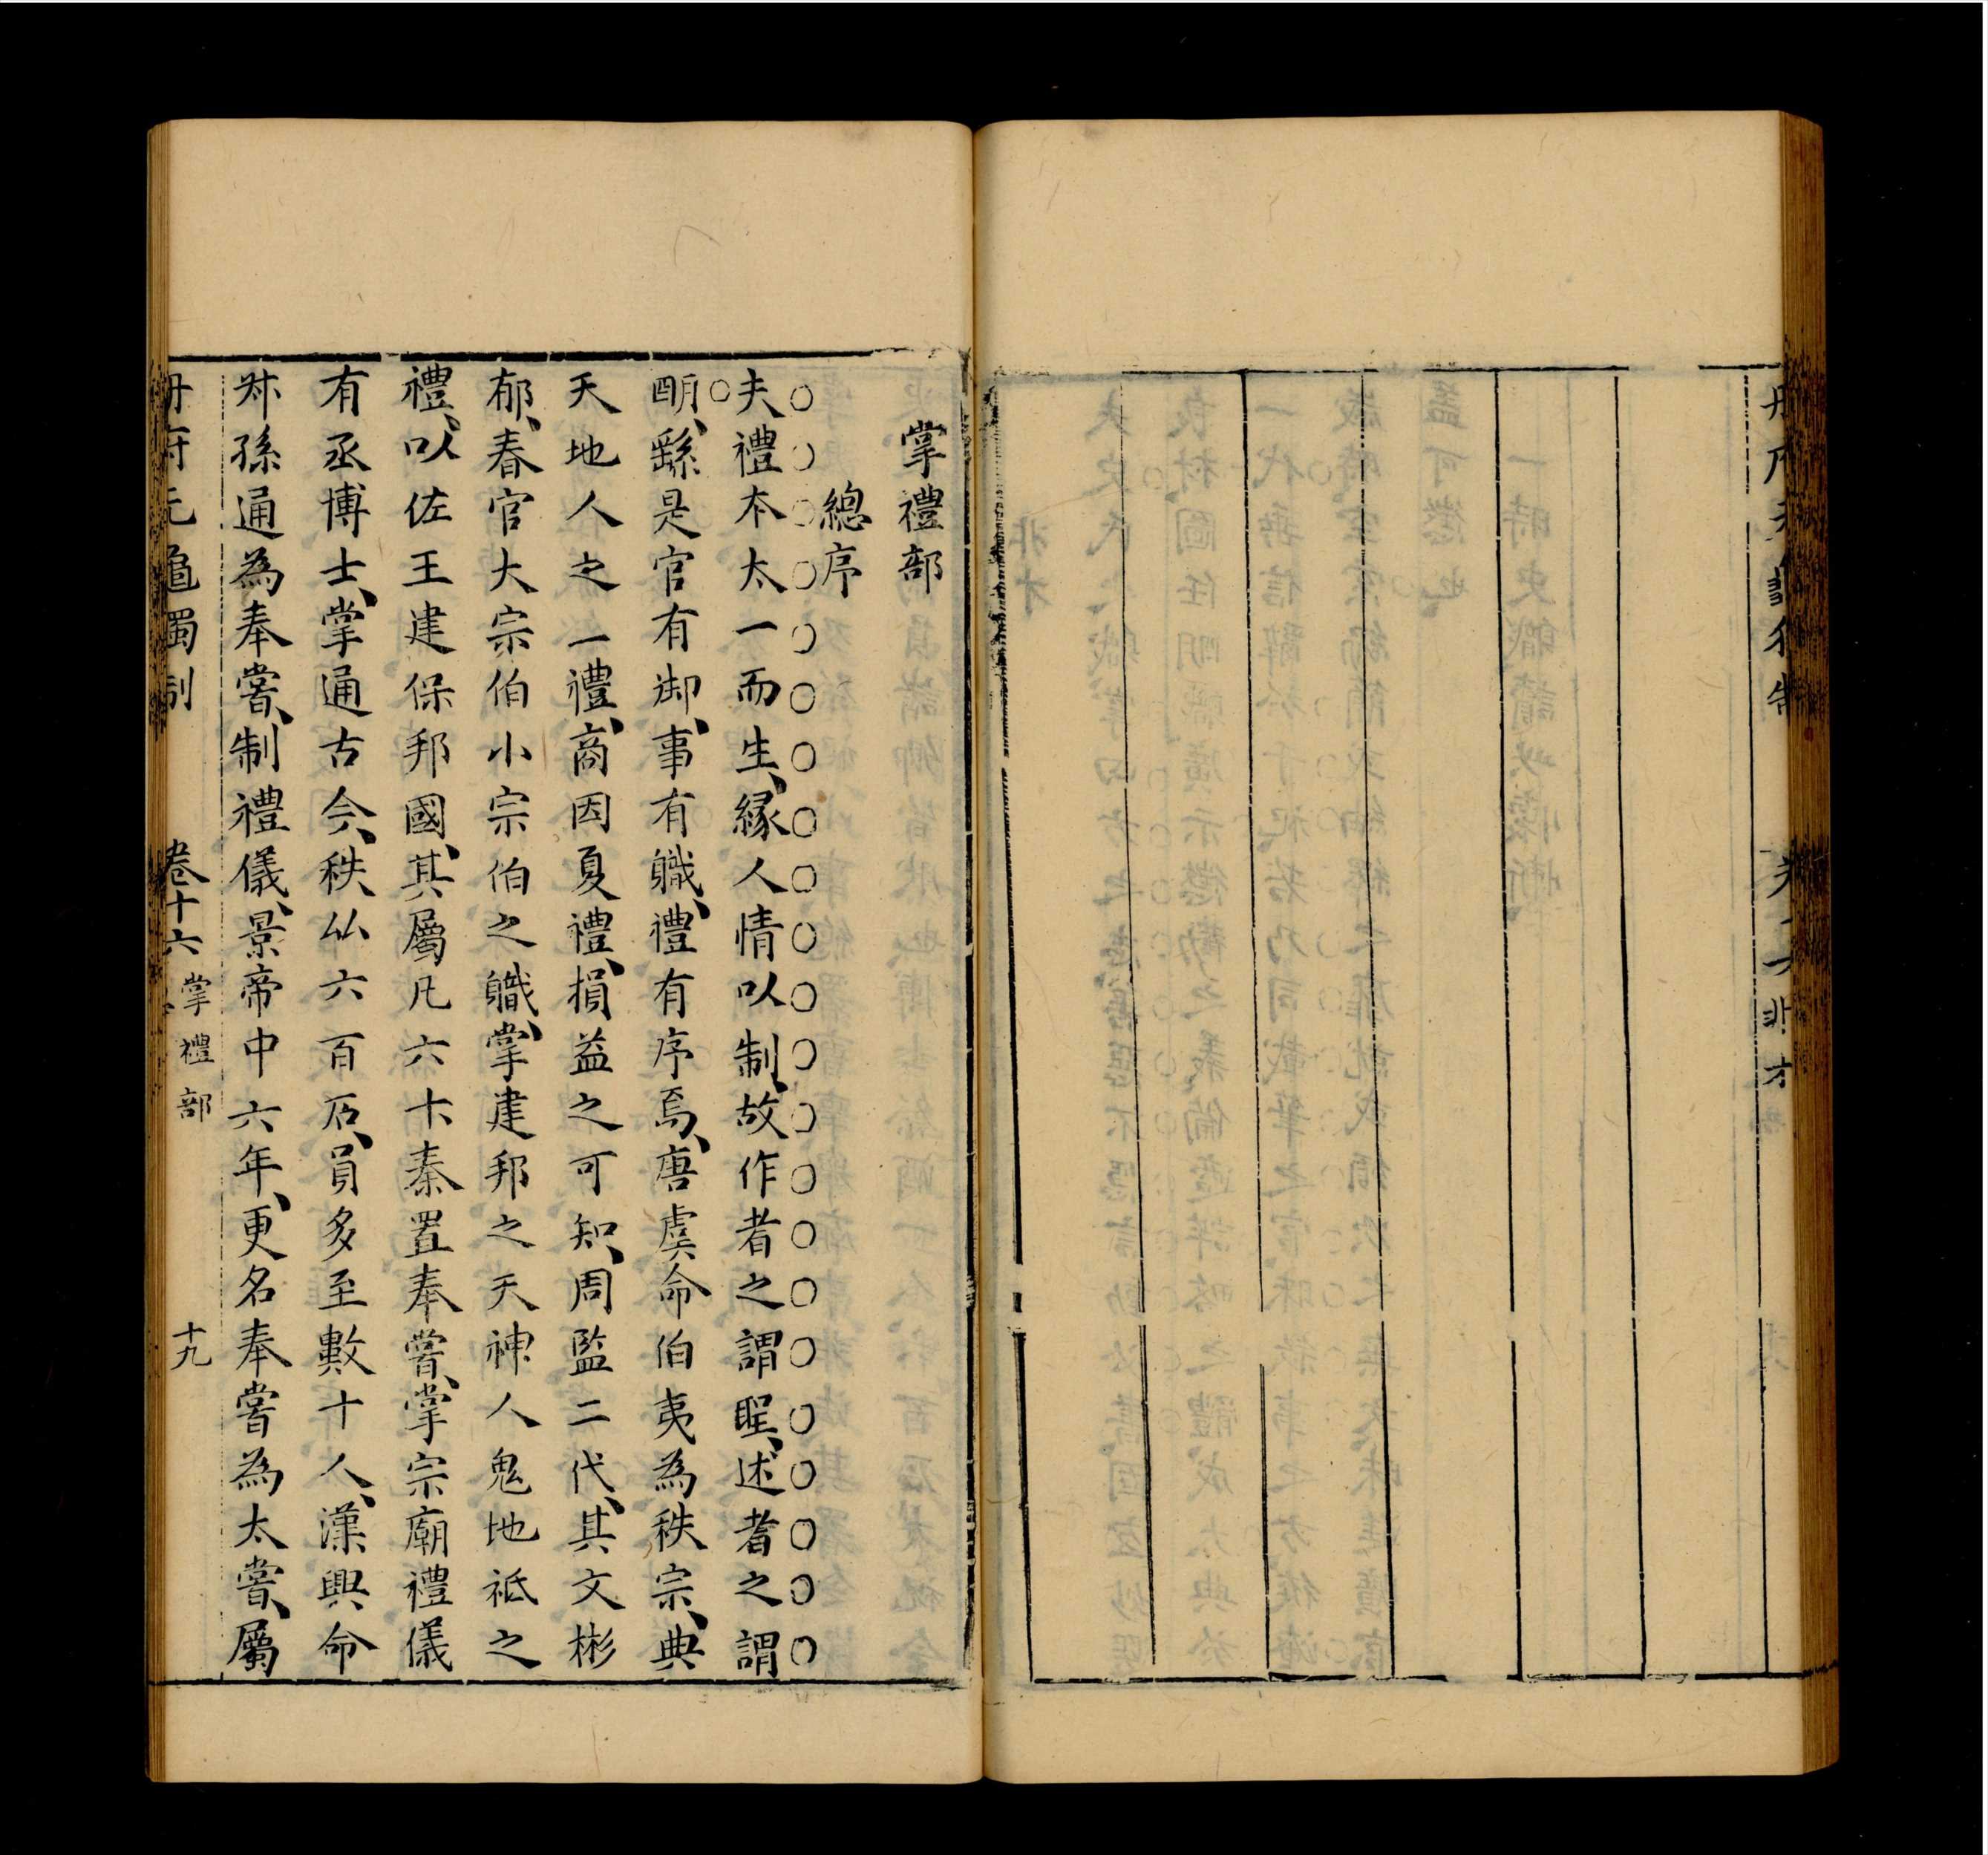 掌禮部
總序
夫禮本太一而生緣人情以制故作者之謂聖述者之謂
明繇是官有御事有職禮有序焉唐虞命伯夷為秩宗典
天地人之一禮商因夏禮損益之可知周監二代其文彬
郁春官大宗伯小宗伯之職掌建邦之天神人鬼地祗之
禮以佐王建保邦國其屬凡六十秦置奉嘗掌宗廟禮儀
有丞博士掌通古今秩比六百石員多至數十人漢興命
叔孫通為奉嘗制禮儀景帝中六年更名奉嘗為太嘗屬
冊府元龜獨制 卷十六 掌禮部 十九